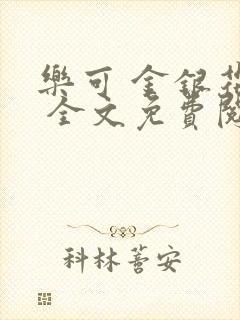 樂可 金銀花
全文免費閱
科林蓍安